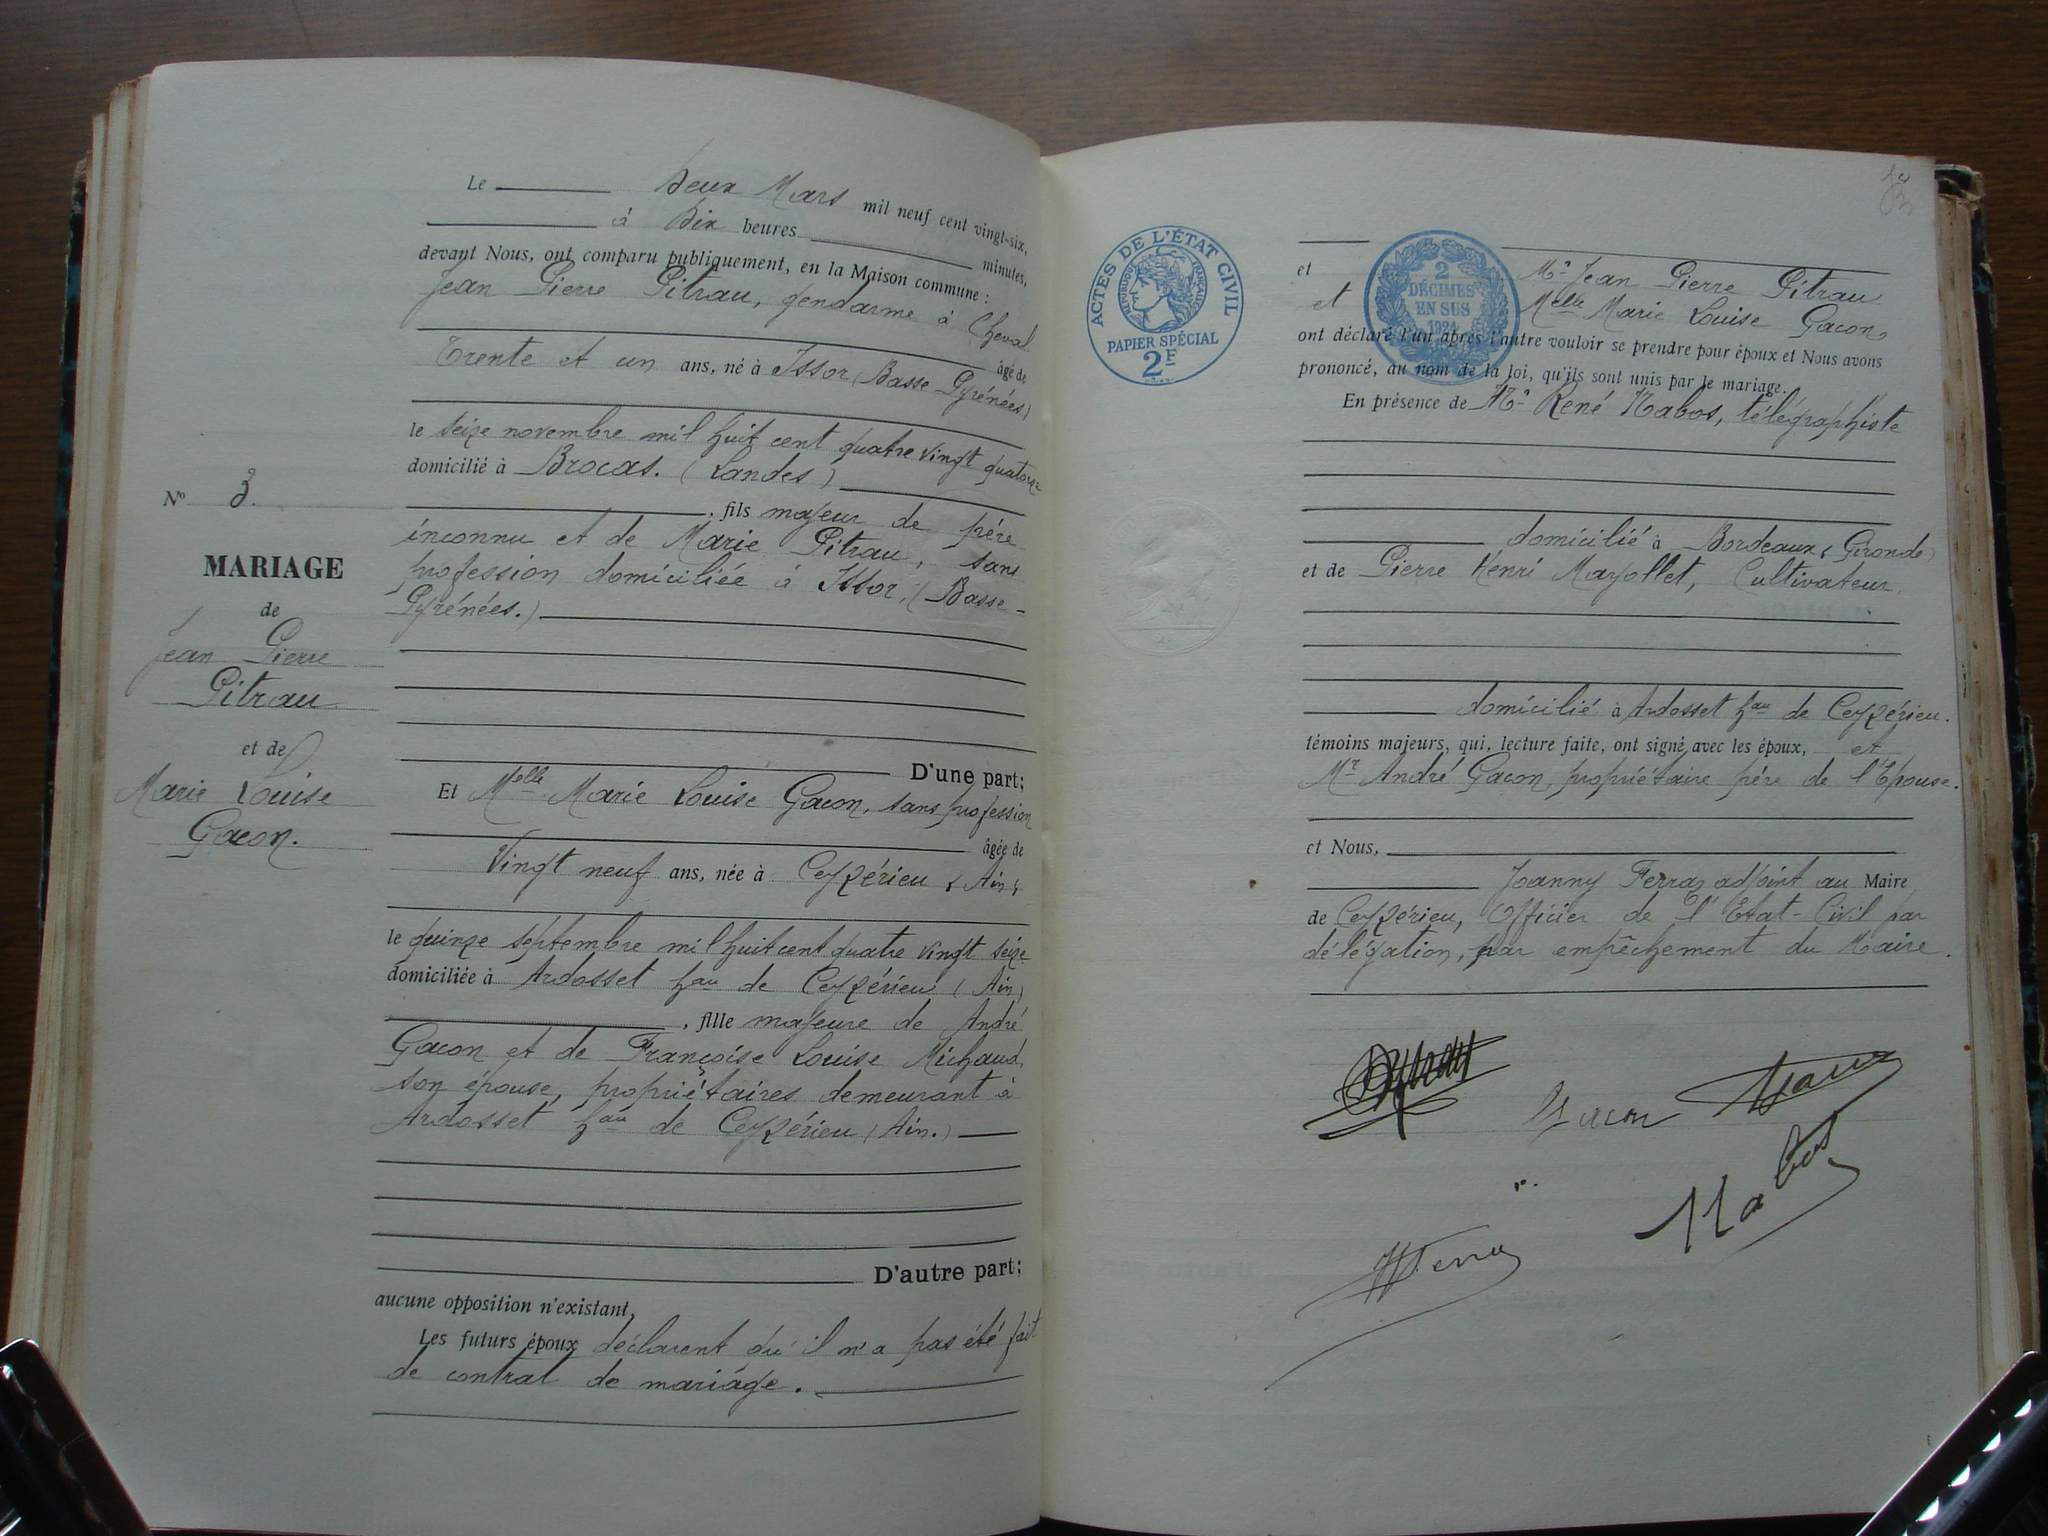 Le Deux Mars mil neuf cent vingt-six,
à Dix heures minutes,
devant Nous, ont comparu publiquement, en la Maison commune :
Jean Pierre Pitrau, gendarme à Cheval
âgé de
Trente et un ans, né à Issor (Basse Pyrénées)
le seize novembre mil huit cent quatre vingt quatorze
domicilié à Brocas. (Landes)
, fils majeur de père
inconnu et de Marie Pitrau, sans
profession domiciliée à Issor, (Basse-
Pyrénées.)
D'une part;
Et Melle Marie Louise Gacon, sans profession
âgée de
Vingt neuf ans, née à Ceyzérieu (Ain)
le quinze septembre mil huit cent quatre vingt seize
domiciliée à Ardosset hau de Ceyzérieu (Ain)
, fille majeure de André
Gacon et de Françoise Louise Michaud,
son épouse, propriétaires demeurant à
Ardosset hau de Ceyzérieu (Ain.)
D'autre part;
aucune opposition n'existant,
Les futurs époux déclarent qu'il n'a pas été fait
de contrat de mariage.
No 3.
MARIAGE
de
Jean Pierre
Pitrau
et de
Marie Louise
Gacon.
ACTES DE L'ÉTAT CIVIL
RÉPUBLIQUE FRANÇAISE
PAPIER SPÉCIAL
2F
2
DÉCIMES
EN SUS
1924
et Mr Jean Pierre Pitrau
et Melle Marie Louise Gacon
ont déclaré l'un après l'autre vouloir se prendre pour époux et Nous avons
prononcé, au nom de la loi, qu'ils sont unis par le mariage.
En présence de Mr René Nabos, télégraphiste
domicilié à Bordeaux (Gironde)
et de Pierre Henri Mayollet, Cultivateur
domicilié à Ardosset hau de Ceyzérieu.
témoins majeurs, qui, lecture faite, ont signé avec les époux, et
Mr André Gacon, propriétaire père de l'Epouse.
et Nous,
Joanny Ferraz adjoint au Maire
de Ceyzérieu, Officier de l'Etat-Civil par
délégation, par empêchement du Maire.
Gacon
Nabos